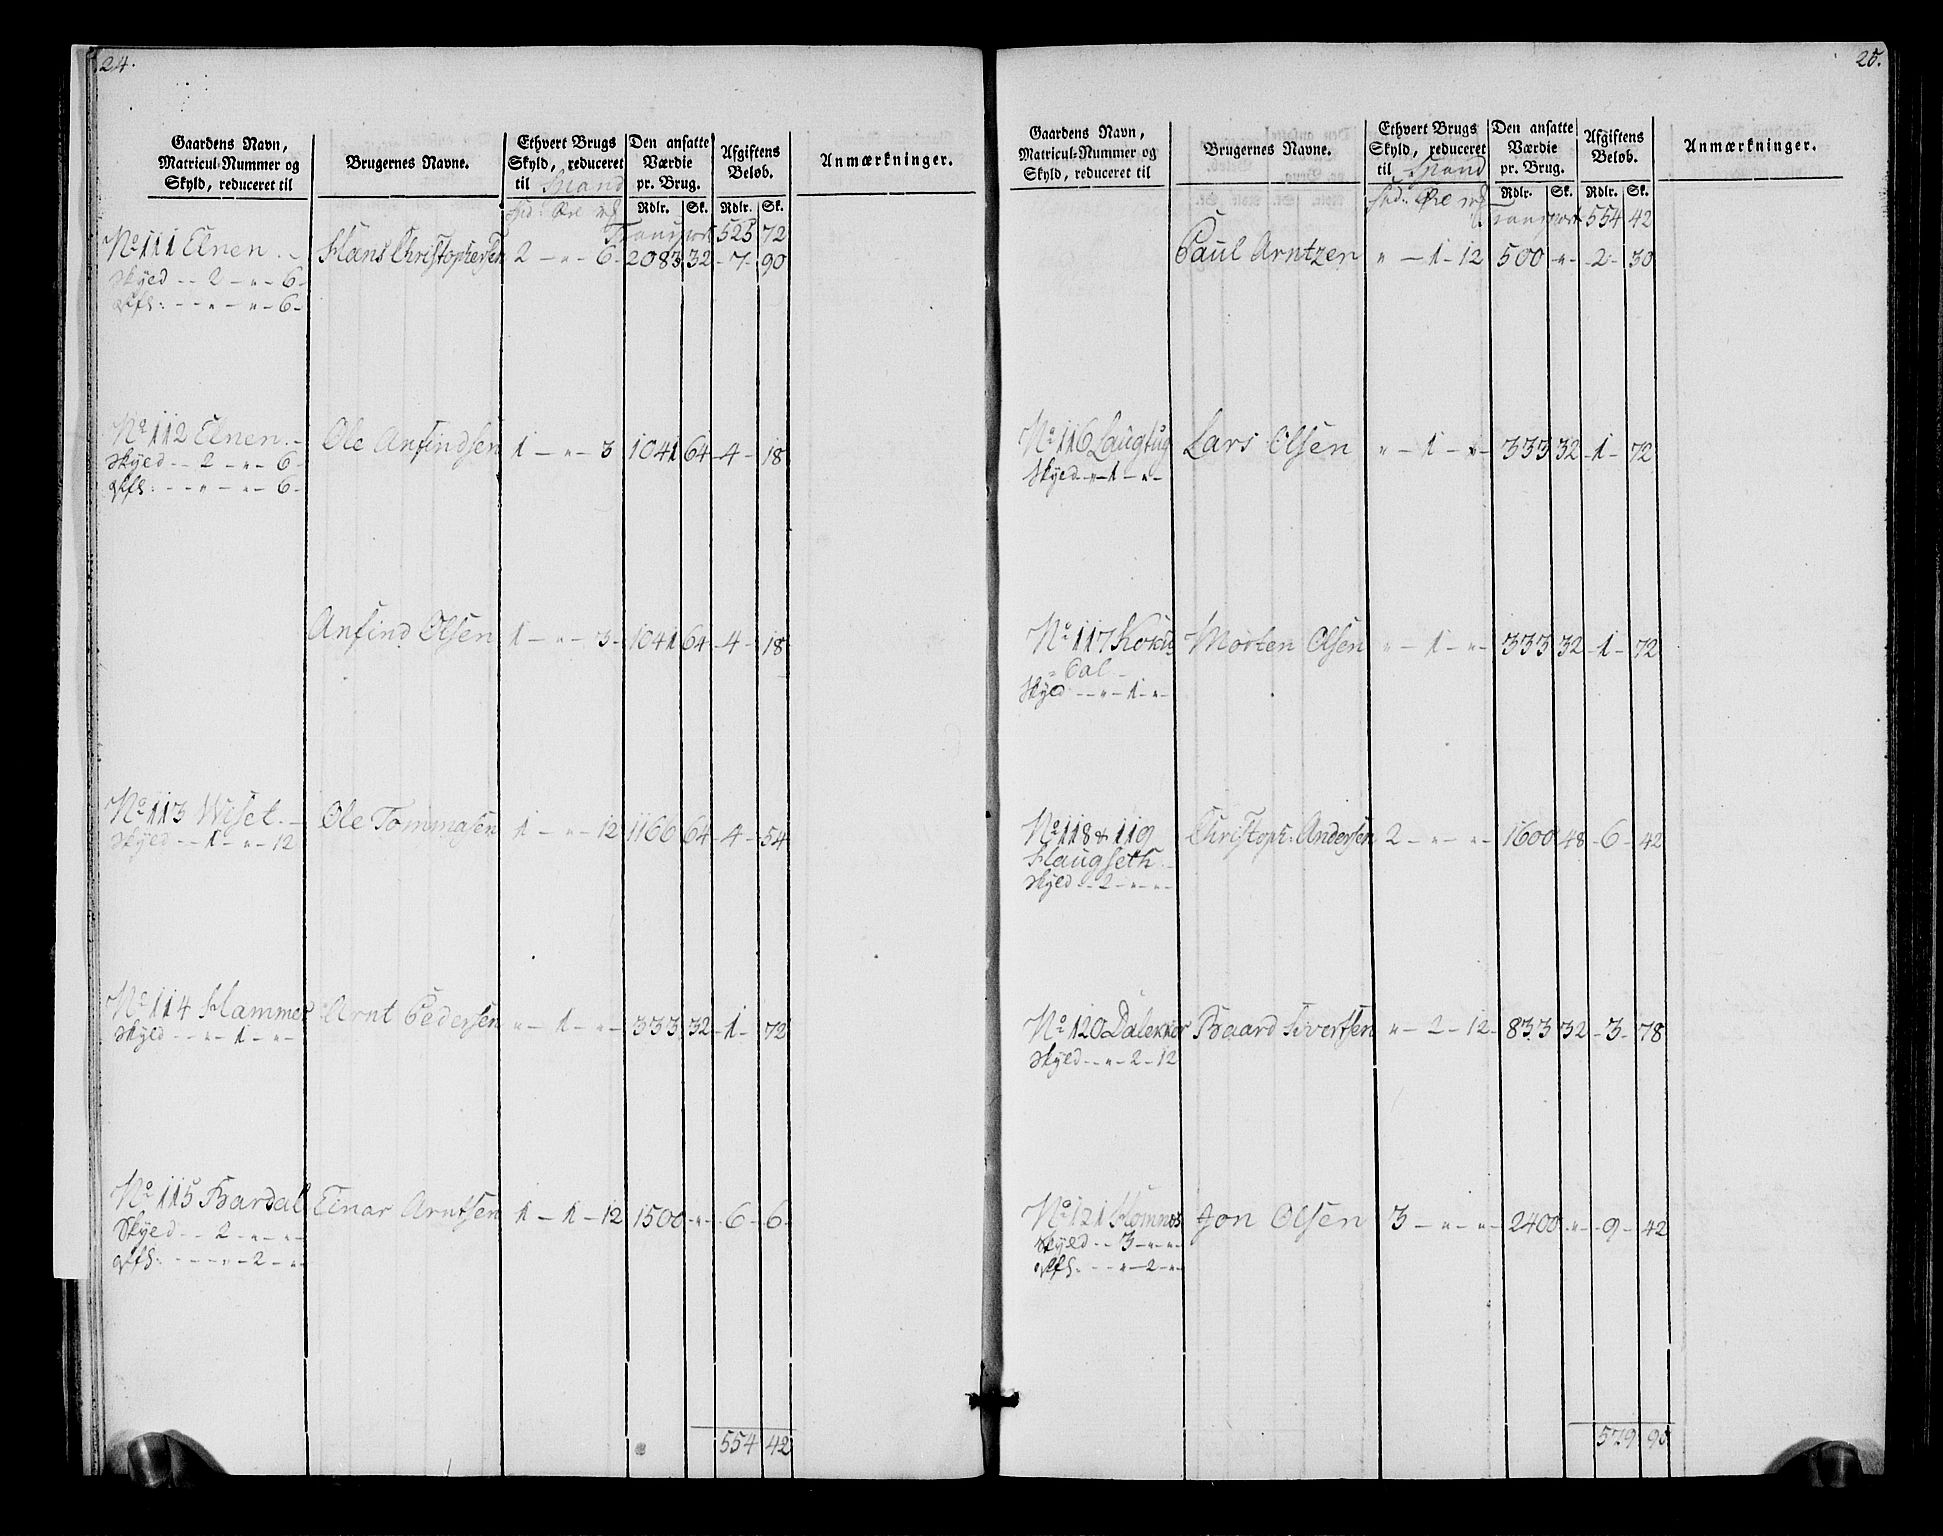 24.
Gaardens Navn, Matricul-Nummer og Skyld, reduceret til | Brugernes Navne. | Ethvert Brugs Skyld, reduceret til | Den ansatte Værdie pr. Brug. | Afgiftens Beløb. | Anmærkninger.
Rdlr. Sk. Rdlr. Sk.
Transport 525 72
No 111 Elnen.- Hans Christophersen 2 - " - 6 - 2083 32 - 7 - 90
Skyld - - 2 - " - 6 -
" - " - 6 -
No 112 Elnen.- Ole Anfindsen 1 - " - 3 1041 64 - 4 - 18
Skyld - - 2 - " - 6 -
" - " - 6 -
Anfind Olsen 1 - " - 3 - 1041 64 - 4 - 18
No 113 Wiset.- Ole Tommasen 1 - " - 12 1166 64 - 4 - 54
Skyld - - 1 - " - 12
No 114 Hammer Arnt Pedersen " - 1 - " - 333 32 - 1 - 72
Skyld - - " - 1 - " -
No 115 Bardal Einar Arntsen 1 - 1 - 12 1500 - " - 6 - 6 -
Skyld - - 2 - " - " -
" - 2 - " -
554 42
25.
Gaardens Navn, Matricul-Nummer og Skyld, reduceret til | Brugernes Navne. | Ethvert Brugs Skyld, reduceret til | Den ansatte Værdie pr. Brug. | Afgiftens Beløb. | Anmærkninger.
Rdlr. Sk. Rdlr. Sk.
Transport 554 42
Paul Arntzen " - 1 - 12 500 - " - 2 - 30
No 116 Lars Olsen " - 1 - " - 333 32 - 1 - 72
Skyld - " - 1 - " -
No 117 Morten Olsen " - 1 - " - 333 32 - 1 - 72
Skyld - - " - 1 - " -
No 118 & 119 Christoph: Andersen 2 - " - " - 1600 48 - 6 - 42
Haugseth
Skyld - - 2 - " - "
No 120 Dalekker Baard Sivertsen " - 2 - 12 - 833 32 - 3 - 78
Skyld - - " - 2 - 12
No 121 Homnes Jon Olsen 3 - " - " - 2400 - " - 9 - 42
Skyld - - 3 - " - "
" - 2 - "
579 90